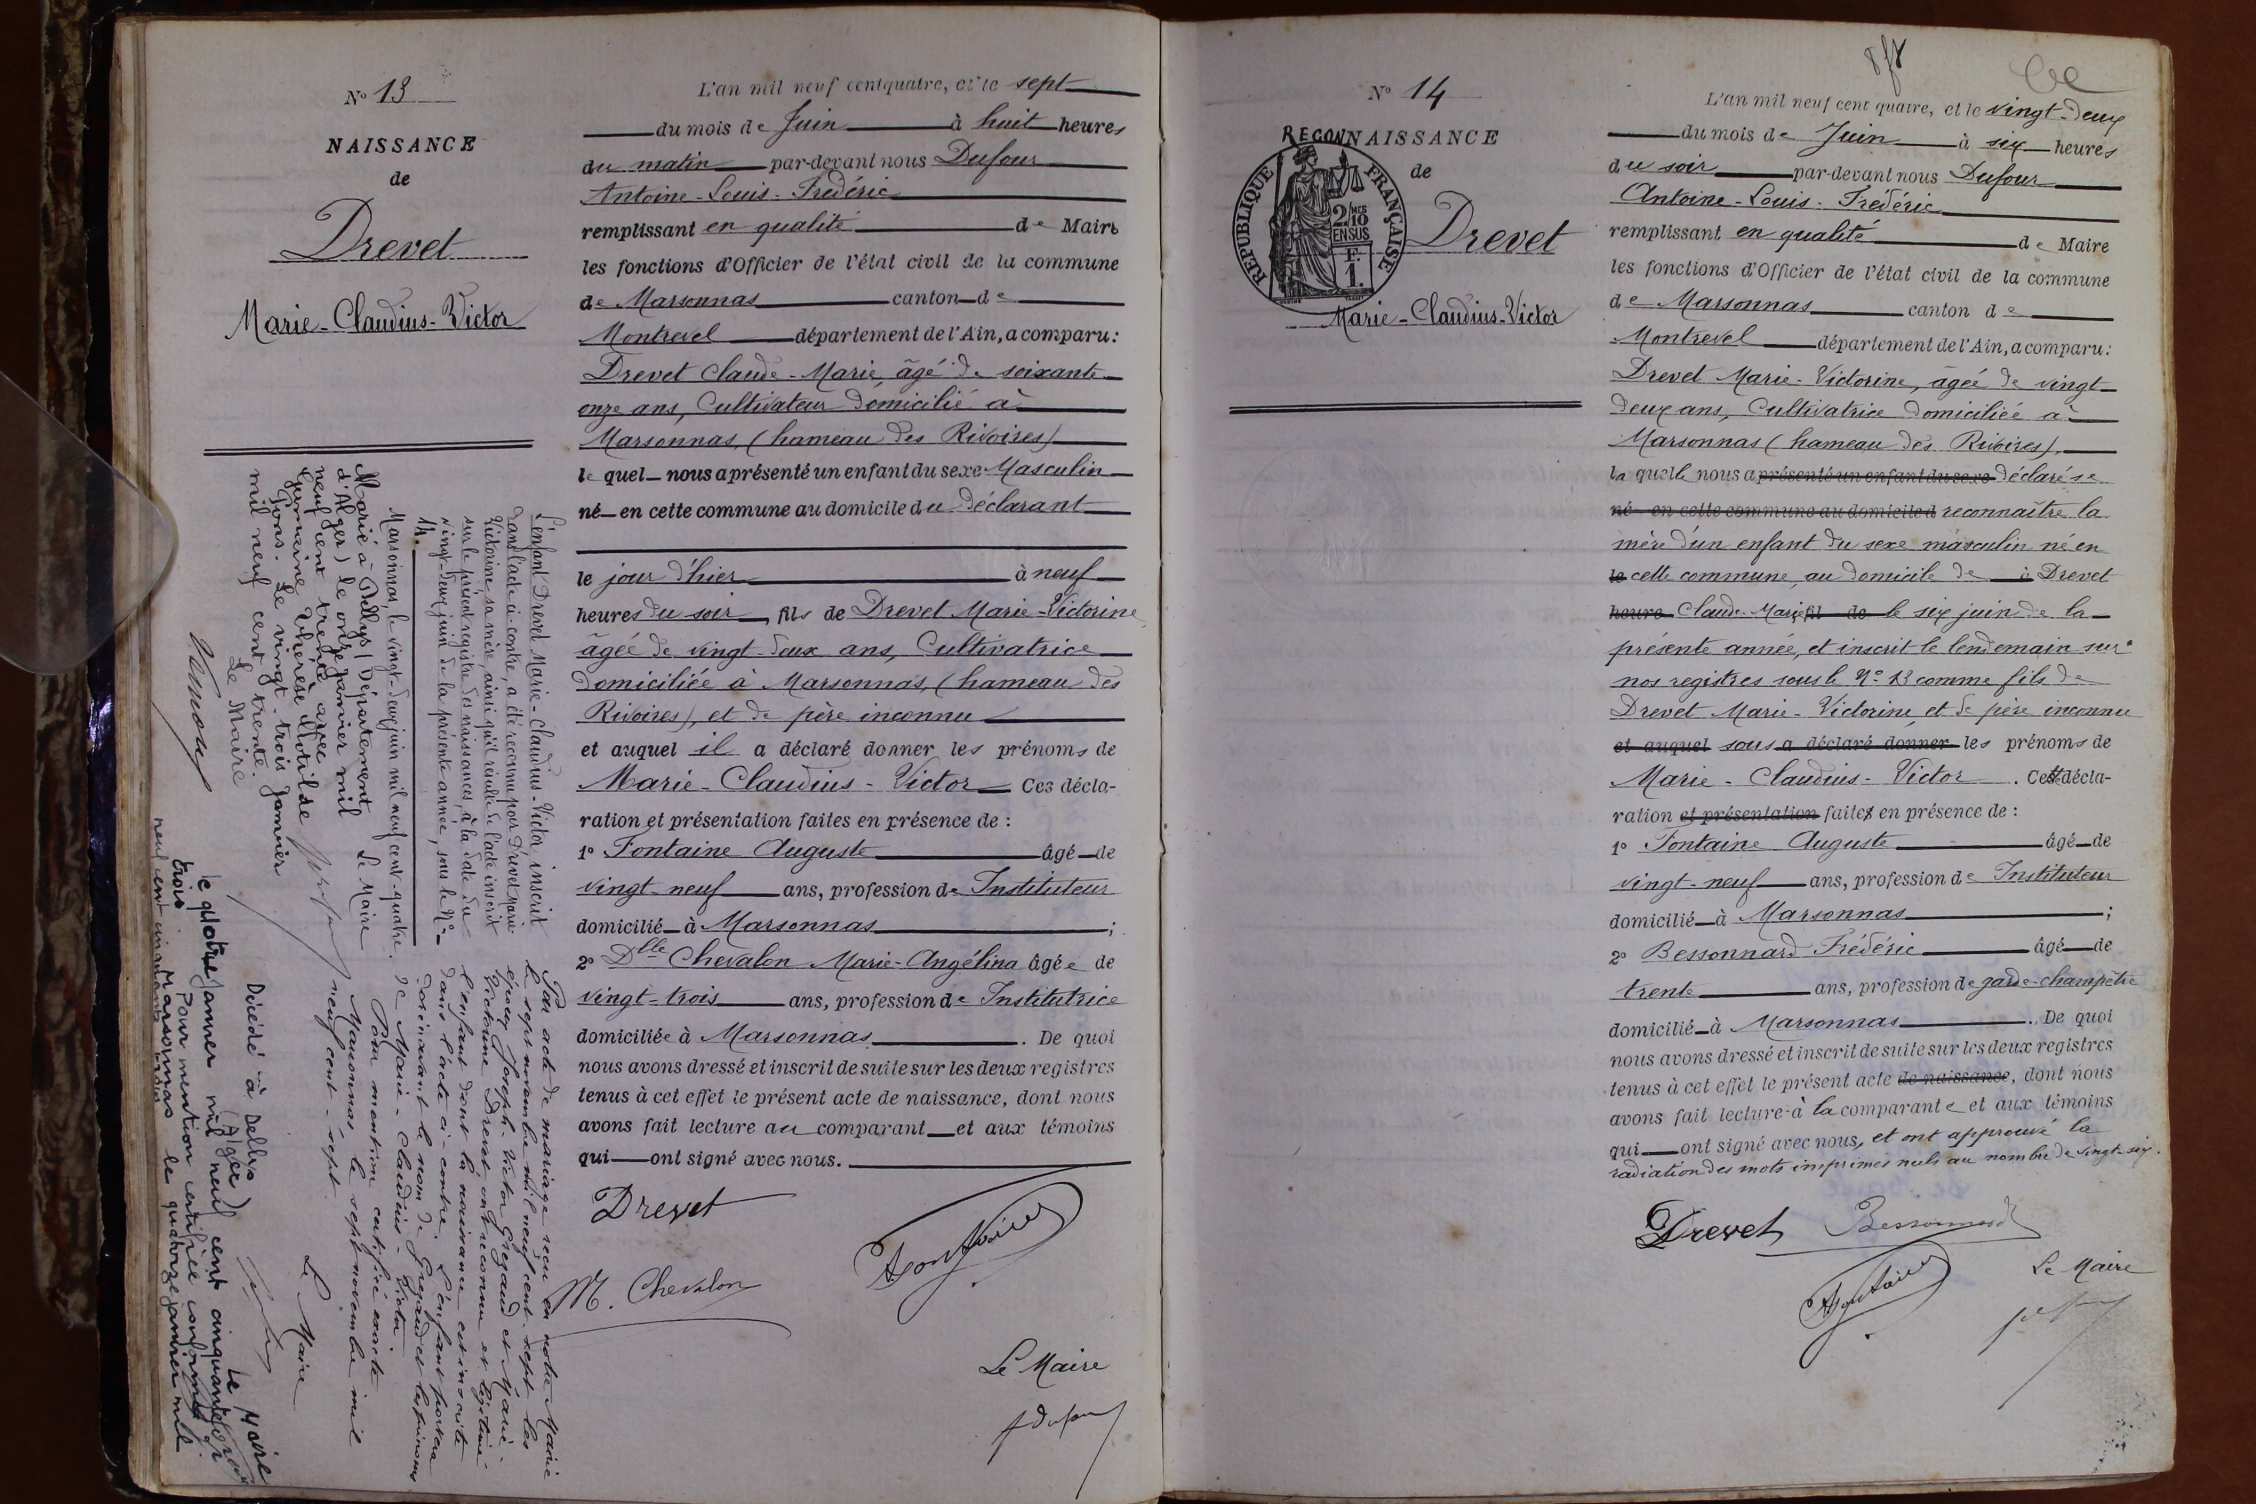 N° 13
NAISSANCE
de
Drevet
Marie-Claudius-Victor
L'enfant Drevet Marie-Claudius-Victor, inscrit
dans l'acte ci-contre, a été reconnu par Drevet Marie-
Victorine, sa mère, ainsi qu'il résulte de l'acte inscrit
sur le présent registre des naissances, à la date du
vingt-deux juin de la présente année, sous le N°
14.
Marsonnas, le vingt-deux juin mil neuf cent-quatre.
Le Maire
Marié à Dellys (Département
d'Alger) le onze janvier mil
neuf cent trente avec
Germaine Thérèse Clotilde
Pons. Le vingt-trois janvier
mil neuf cent trente.
Le Maire
Par acte de mariage reçu en notre Mairie
le sept novembre mil neuf cent sept les
époux Joseph-Victor Gregaud et Marie-
Victorine Drevet, ont reconnu et légitimé
l'enfant dont la naissance est inscrite
dans l'acte ci-contre. L'enfant portera
dorénavant le nom de Gregaud et les prénoms
de Marie-Claudius-Victor
Pour mention certifiée exacte
Marsonnas, le sept novembre mil
neuf cent-sept
Le Maire
Décédé à Dellys
(Alger)
le quatre janvier mil neuf cent cinquante
trois.
Pour mention certifiée conforme
Marsonnas le quatorze janvier mil
neuf cent cinquante trois
Le Maire
L'an mil neuf cent quatre, et le sept
du mois de Juin à huit heures
du matin par-devant nous Dufour
Antoine-Louis-Frédéric
remplissant en qualité de Maire
les fonctions d'Officier de l'état civil de la commune
de Marsonnas canton de
Montrevel département de l'Ain, a comparu:
Drevet Claude-Marie, âgé de soixante
onze ans, Cultivateur domicilié à
Marsonnas, (hameau des Rivoires)
le quel nous a présenté un enfant du sexe Masculin
né en cette commune au domicile du déclarant
le jour d'hier à neuf
heures du soir, fils de Drevet Marie-Victorine
âgée de vingt-deux ans, Cultivatrice
domiciliée à Marsonnas, (hameau des
Rivoires), et de père inconnu
et auquel il a déclaré donner les prénoms de
Marie-Claudius-Victor Ces décla-
ration et présentation faites en présence de :
1° Fontaine Auguste âgé de
vingt-neuf ans, profession de Instituteur
domicilié à Marsonnas ;
2° Dlle Chevalon Marie-Angélina âgée de
vingt-trois ans, profession de Institutrice
domiciliée à Marsonnas . De quoi
nous avons dressé et inscrit de suite sur les deux registres
tenus à cet effet le présent acte de naissance, dont nous
avons fait lecture au comparant et aux témoins
qui ont signé avec nous.
Drevet
Fontaine
M. Chevalon
Le Maire
ADufour
N° 14
RECONNAISSANCE
de
REPUBLIQUE FRANÇAISE
2/10 MES
EN SUS
F.
1.
Drevet
Marie-Claudius-Victor
L'an mil neuf cent quatre, et le vingt-deux
du mois de Juin à six heures
du soir par-devant nous Dufour
Antoine-Louis-Frédéric
remplissant en qualité de Maire
les fonctions d'Officier de l'état civil de la commune
de Marsonnas canton de
Montrevel département de l'Ain, a comparu:
Drevet Marie-Victorine, âgée de vingt
deux ans, Cultivatrice domiciliée à
Marsonnas (hameau des Rivoires),
la quelle nous a présenté un enfant du sexe déclaré se
né en cette commune au domicile d reconnaître la
mère d'un enfant du sexe masculin né en
le cette commune, au domicile de à Drevet
heure Claude-Marie, fil de le six juin de la
présente année, et inscrit le lendemain sur
nos registres sous le N° 13 comme fils de
Drevet Marie-Victorine, et de père inconnu
et auquel sous a déclaré donner les prénoms de
Marie-Claudius-Victor . Cette décla-
ration et présentation faites en présence de :
1° Fontaine Auguste âgé de
vingt-neuf ans, profession de Instituteur
domicilié à Marsonnas ;
2° Bessonnard Frédéric âgé de
trente ans, profession de garde-champêtre
domicilié à Marsonnas . De quoi
nous avons dressé et inscrit de suite sur les deux registres
tenus à cet effet le présent acte de naissance, dont nous
avons fait lecture à la comparante et aux témoins
qui ont signé avec nous, et ont approuvé la
radiation des mots imprimés nuls au nombre de vingt-six.
Drevet
Bessonnard
Fontaine
Le Maire